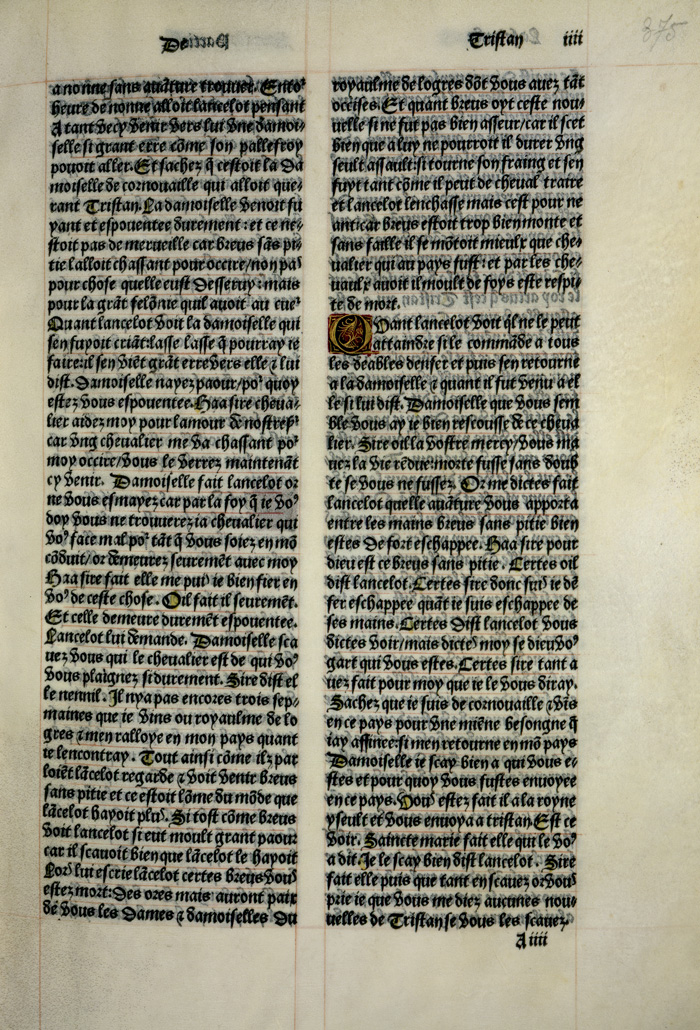 De
Tristan iiii
875
a nonne sans auãture trouuer. Entoˢ
heure de nonne alloit lancelot pensant
A tant vecy venir vers lui vne damoi⸗
selle si grant erre cõme son pallefroy
pouoit aller. Et sachez q̃ cestoit la da
moiselle de cornouaille qui alloit que⸗
rant Tristan. La damoiselle venoit fu
yant et espouentee durement : et ce ne⸗
stoit pas de merueille car breus sãs pi⸗
tie lalloit chassant pour occire/non paˢ
pour chose quelle eust desseruy : mais
pour la grãt felõnie quil auoit au cueˢ
Quant lancelot voit la damoiselle qui
sen fuyoit criãt:lasse lasse q̃ pourray ie
faire:il sen viẽt grãt erre vers elle ⁊ lui
dist. Damoiselle nayez paour/poˢ quoy
estez vous espouentee. Haa sire cheua⸗
lier aidez moy pour lamour de nostreſˢ
car vng cheualier me va chassant poˢ
moy occire/vous le verrez maintenãt
cy venir. Damoiselle fait lancelot or
ne vous esmayez car par la foy q̃ ie voˢ
doy vous ne trouuerez ia cheualier qui
voˢ face mal poˢ tãt q̃ vous soiez en mõ
cõduit/or demeurez seuremẽt auec moy
Haa sire fait elle me puiˢ ie bien fier en
voˢ de ceste chose. Oil fait il seuremẽt.
Et celle demeure duremẽt espouentee.
Lancelot lui demande. Damoiselle sca
uez vous qui le cheualier est de qui voˢ
vous plaignez si durement. Sire dist el
le nennil. Il nya pas encores trois sep⸗
maines que ie vins ou royaulme de lo
gres ⁊ men ralloye en mon pays quant
ie lencontray. Tout ainsi cõme ilz par
loiẽt lãcelot regarde ⁊ voit venir breus
sans pitie et ce estoit lõme du mõde que
lãcelot hayoit pluˢ. Si tost cõme breus
voit lancelot si eut moult grant paour
car il scauoit bien que lãcelot le hayoit
Lorˢ lui escrie lãcelot certes breus vouˢ
estez mort:des ores mais auront paix
de vous les dames ⁊ damoiselles du
royaulme de logres dõt vous auez tãt
occises. Et quant breus oyt ceste nou⸗
uelle si ne fut pas bien asseur/car il scet
bien que a luy ne pourroit il durer vng
seult assault:si tourne son fraing et sen
fuyt tant cõme il peut de cheual traire
et lancelot lenchasse mais cest pour ne
ant:car breus estoit trop bien monte et
sans faille il se mõtoit mieulx que che⸗
ualier qui au pays fust: et par les che⸗
uaulx auoit il moult de foys este respi⸗
te de mort.
Quant lancelot voit ql̃ ne le peut
attaindre si le commãde a tous
les deables denfer et puis sen retourne
a la damoiselle ⁊ quant il fut venu a el
le si lui dist. Damoiselle que vous sem
ble vous ay ie bien rescousse de ce cheua
lier. Sire oil la vostre mercy/vous ma
uez la vie rẽdue:morte fusse sans doub
te se vous ne fussez. Or me dictes fait
lancelot quelle auãture vous apporta
entre les mains breus sans pitie bien
estes de fort eschappee. Haa sire pour
dieu est ce breus sans pitie. Certes oil
dist lancelot. Certes sire donc suiˢ ie dẽ
fer eschappee quãt ie suis eschappee de
ses mains. Certes dist lancelot vous
dictes voir/mais dicteˢ moy se dieu voˢ
gart qui vous estes. Certes sire tant a
uez fait pour moy que ie le vous diray.
Sachez que ie suis de cornouaille ⁊ vĩs
en ce pays pour vne miẽne besongne q̃
iay affinee:si men retourne en mõ pays
Damoiselle ie scay bien a qui vous e⸗
stes et pour quoy vous fustes enuoyee
en ce pays. Vouˢ estez fait il a la royne
yseult et vous enuoya a tristan Est ce
voir. Saincte marie fait elle qui le voˢ
a dit. Je le scay bien dist lancelot. Sire
fait elle puis que tant en scauez or vouˢ
prie ie que vous me diez aucunes nou⸗
uelles de Tristan se vous les scauez.
A iiii